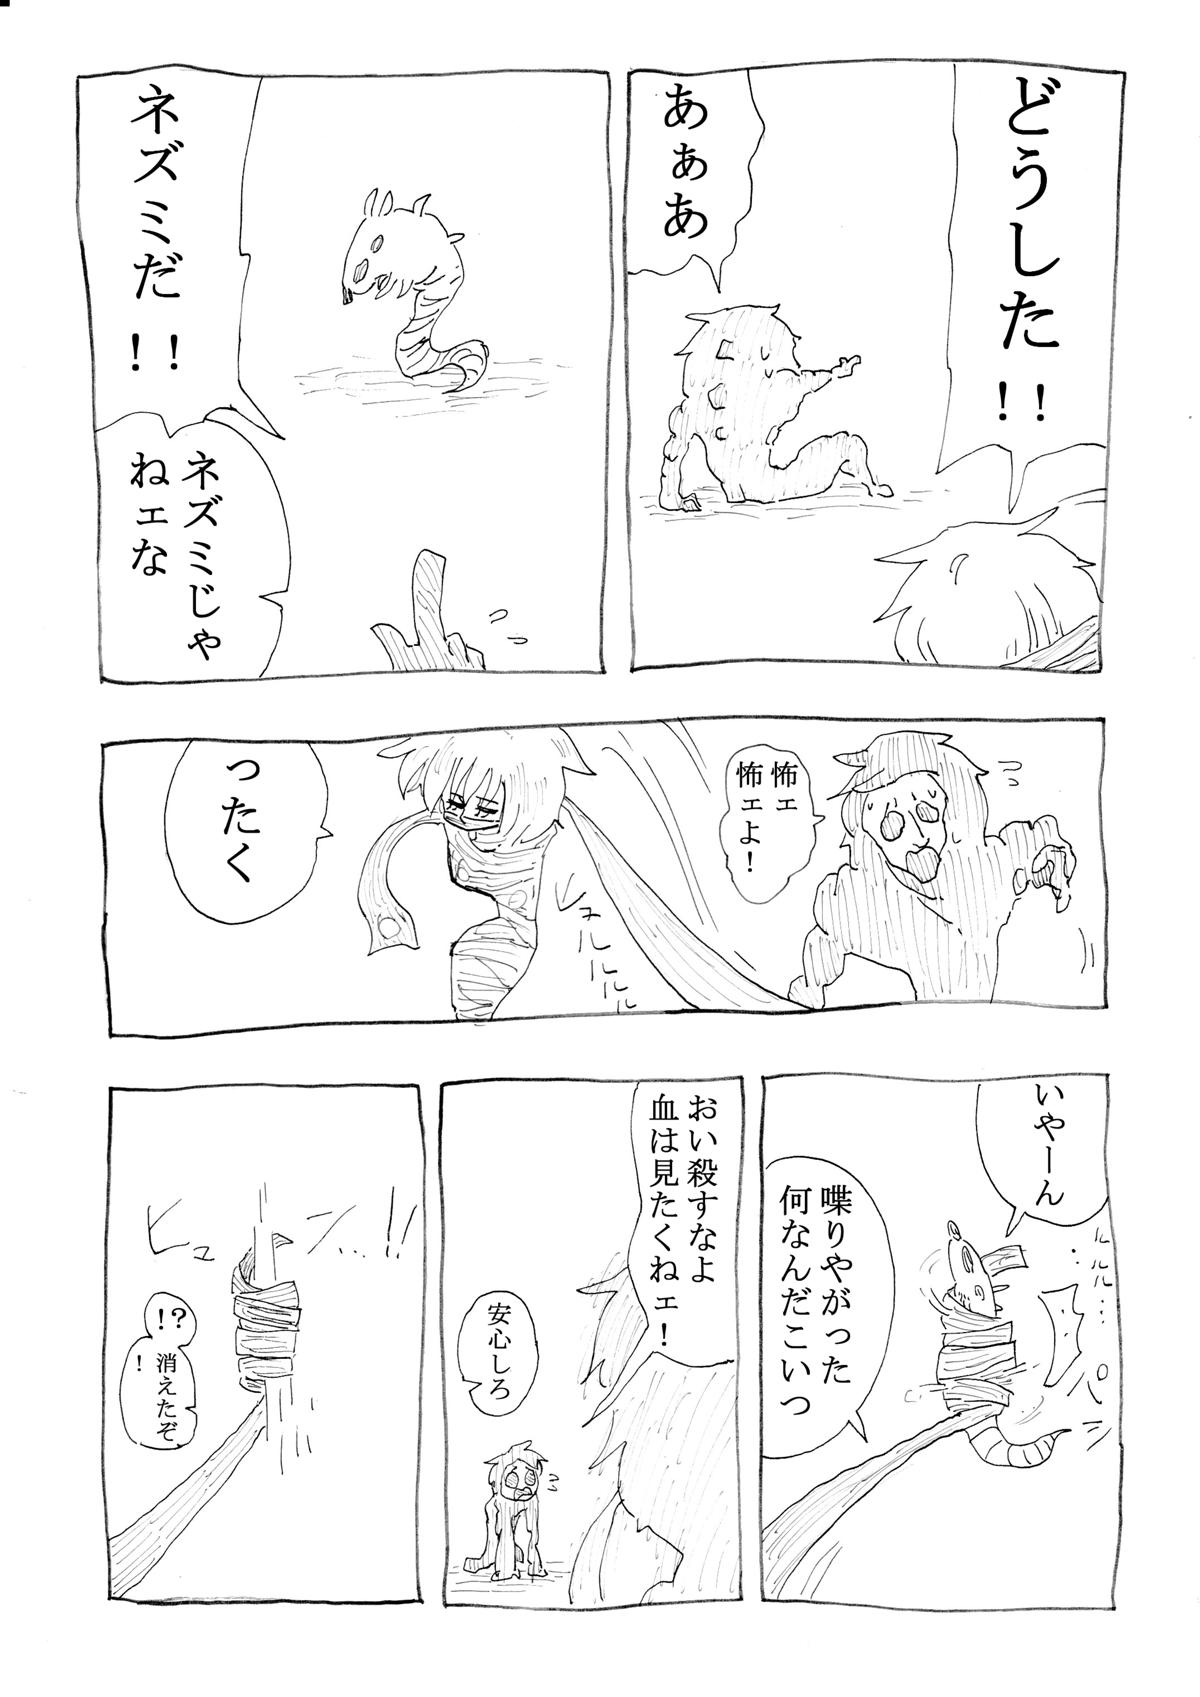 どうした!!
あぁあ
ネズミだ!!
ネズミじゃ
ねェな
怖ェ
怖ェよ!
ヒュルルルル
ったく
いやーん
ルルル…
パシ
喋りやがった
何なんだこいつ
おい殺すなよ
血は見たくねェ!
安心しろ
ヒュン…!!
!?
消えたぞ
!